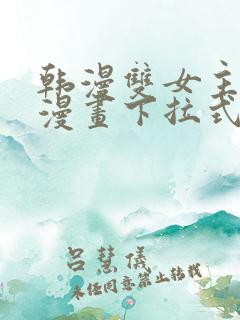 韩漫雙女主
漫畫下拉式
呂慧儀
未经同意禁止转载